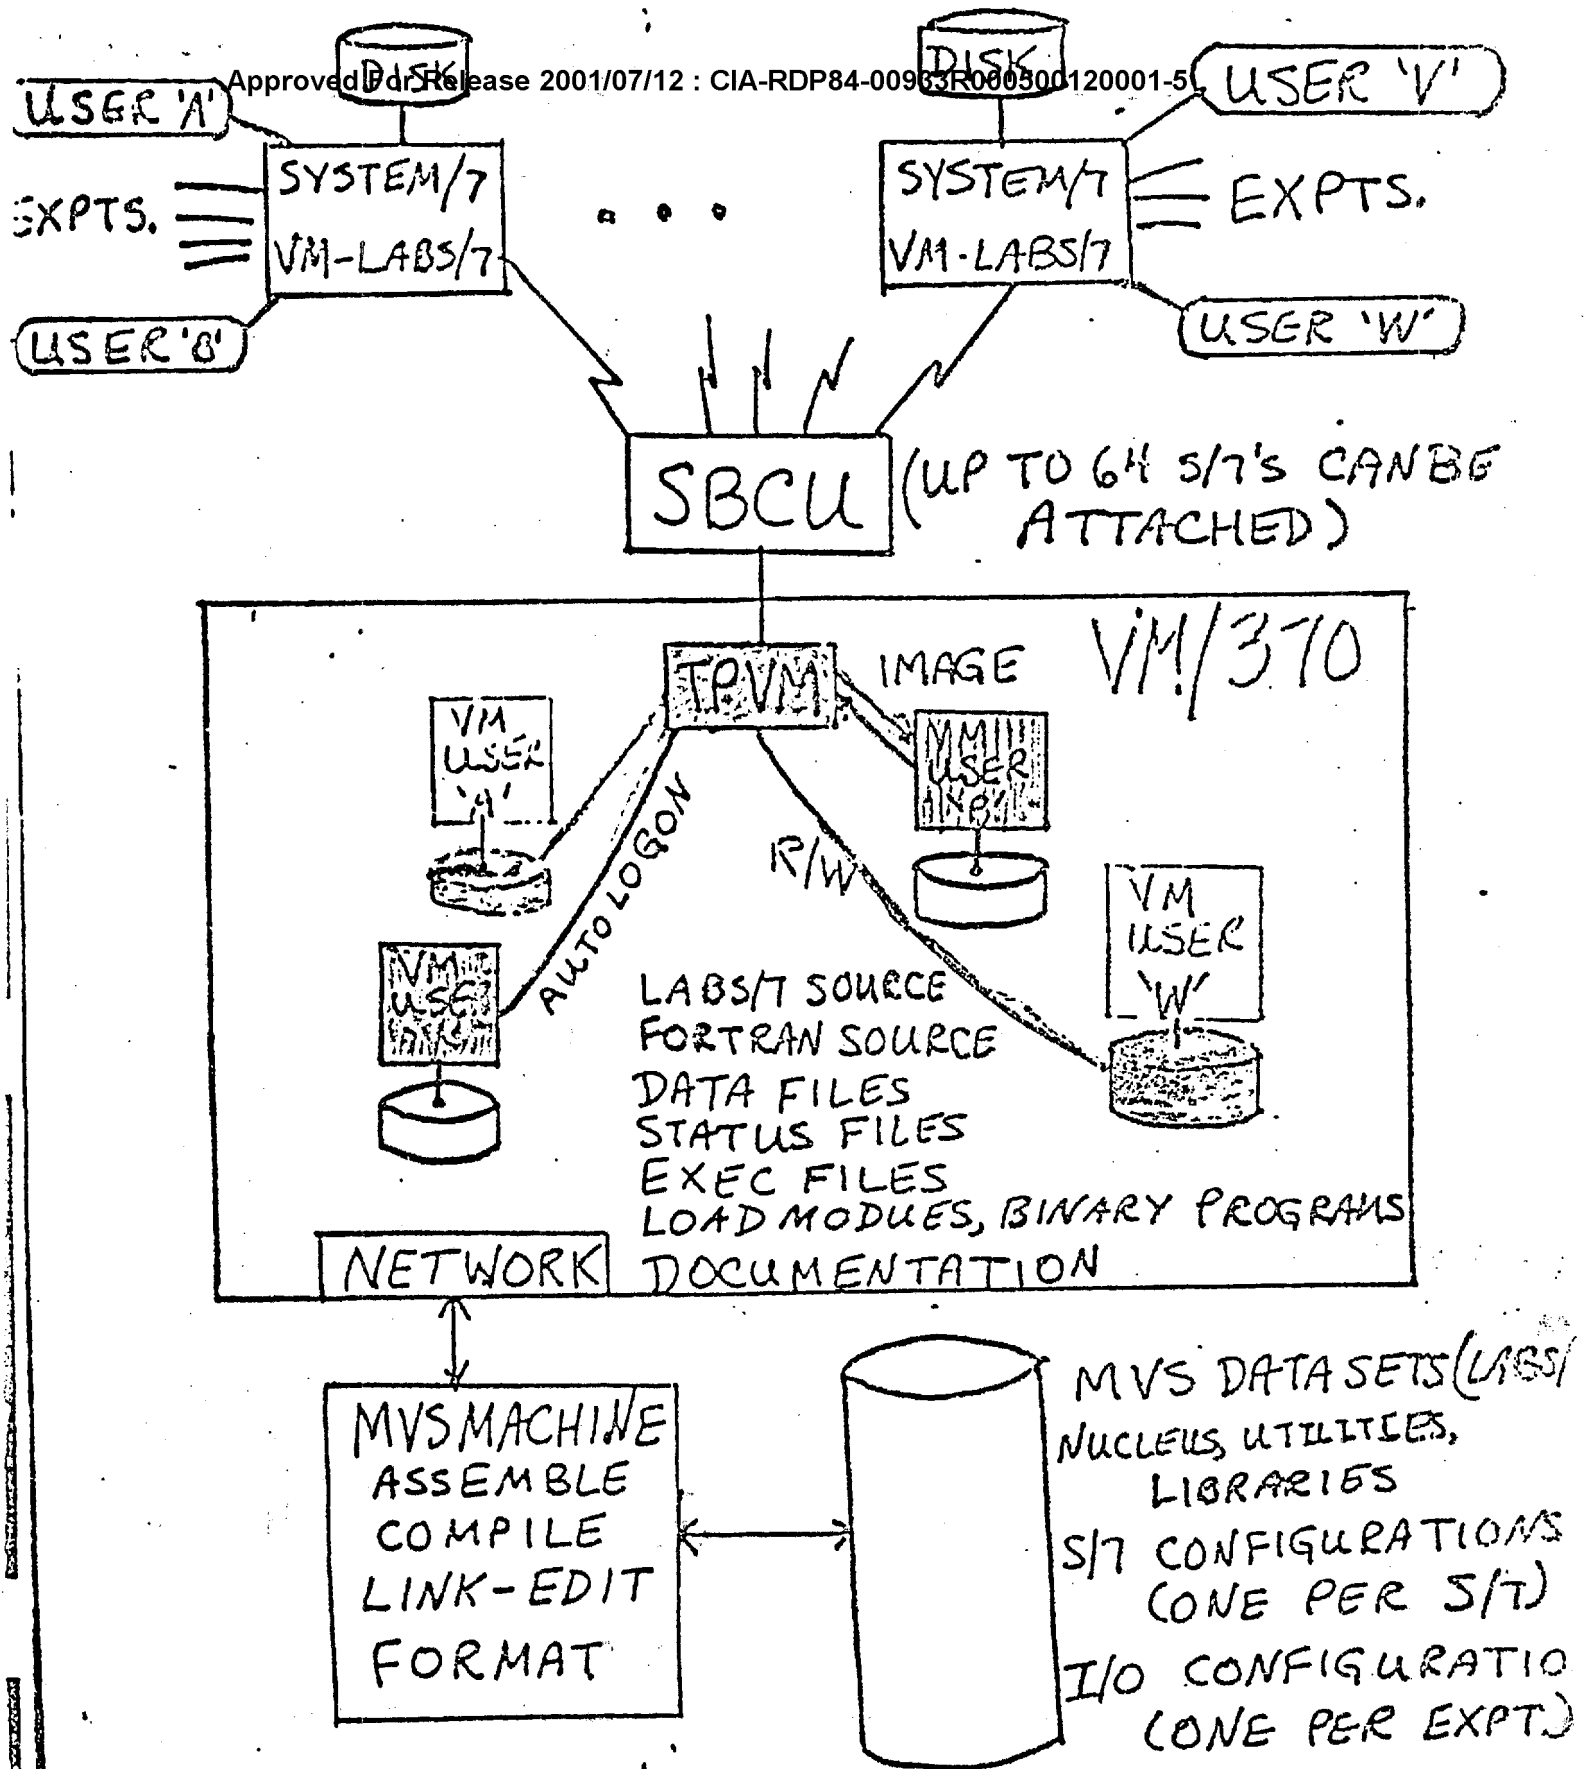 DISK
DISK
Approved For Release 2001/07/12 : CIA-RDP84-00933R000500120001-5
USER 'A'
USER 'V'
SYSTEM/7
VM-LABS/7
EXPTS.
SYSTEM/7
VM-LABS/7
EXPTS.
USER 'B'
USER 'W'
SBCU
(UP TO 64 S/7'S CAN BE
ATTACHED)
VM/370
TPVM
IMAGE
VM
USER
'A'
VM
USER
'B'
AUTO LOGON
R/W
VM
USER
'W'
VM
USER
'V'
LABS/7 SOURCE
FORTRAN SOURCE
DATA FILES
STATUS FILES
EXEC FILES
LOAD MODUES, BINARY PROGRAMS
DOCUMENTATION
NETWORK
MVS MACHINE
ASSEMBLE
COMPILE
LINK-EDIT
FORMAT
MVS DATA SETS (LABS/
NUCLEUS, UTILITIES,
LIBRARIES
S/7 CONFIGURATIONS
(ONE PER S/7)
I/O CONFIGURATIO
(ONE PER EXPT.)